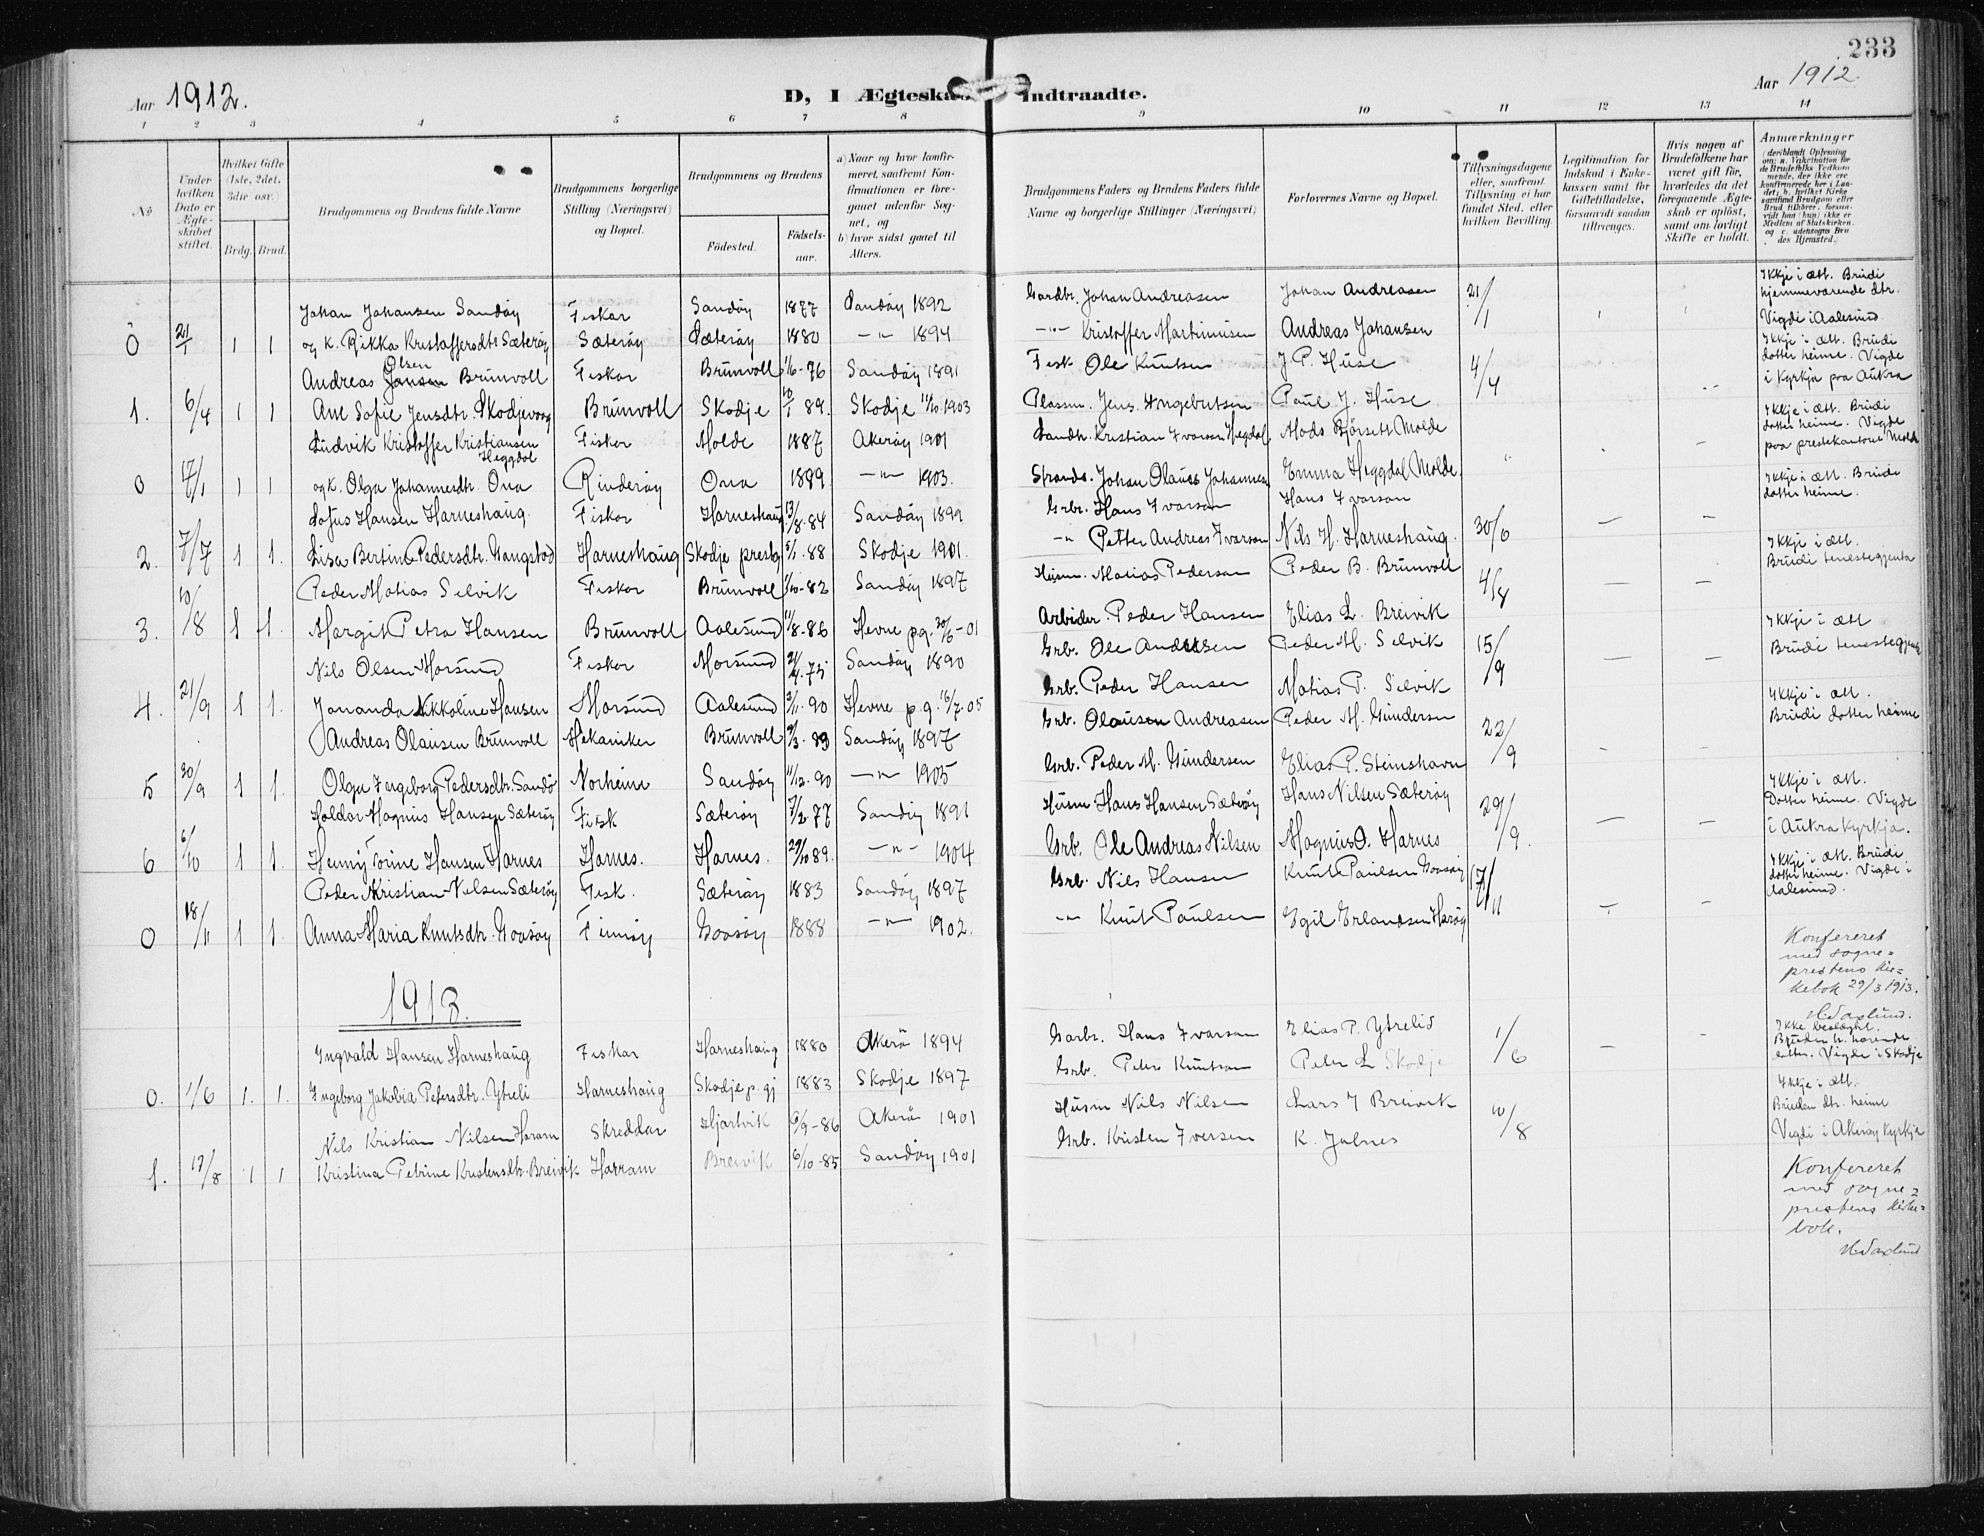 233
Aar 1912.
D, I Ægteskab Indtraadte.
Aar 1912.
1 2 3 4 5 6 7 8 9 10 11 12 13 14
No
Under hvilken Dato er Ægteskabet stiftet.
Hvilket Gifte (1ste, 2det, 3die osv.)
Brdg. Brud.
Brudgommens og Brudens fulde Navne
Brudgommens borgerlige Stilling (Næringsvei) og Bopæl.
Brudgommens og Brudens
Fødested.
Fødselsaar.
a) Naar og hvor konfirmeret, samt om Konfirmationen er foregaaet udenfor Sognet, og
b) hvor sidst gaaet til Alters.
Brudgommens Faders og Brudens Faders fulde Navne og borgerlige Stillinger (Næringsvei)
Forlovernes Navne og Bopæl.
Tillysningsdagene eller, saafremt Tillysning ei har fundet Sted, efter hvilken Bevilling
Legitimation for Indskud i Enkekassen samt for Giftetilladelse, forsaavidt saadan tiltrænges.
Hvis nogen af Brudefolkene har været gift før, hvorledes da det foregaaende Ægteskab er opløst, samt om lovligt Skifte er holdt.
Anmærkninger
Johan Johansen Sandöy Fiskar Sandöy 1877 Sandöy 1892 Gardbr. Johan Andreasen Johan Andreasen 21/1 Ikkje i ætt. Brudi hjemmeværende dtr. Vigdi i Aalesund
0 21/1 1 1 og k. Rikka Kristoffersdtr Sæteröy Sæteröy Sæteröy 1880 -"- 1894 -"- Kristoffer Martinusen Andreas Johansen
Andreas Jansen Olsen Brunvoll Fiskar Brunvoll 1/6-76 Sandöy 1891 Fisk Ole Knutsen J. P. Huse 4/4 Ikkje i ætt. Brudi dotter heime. Vigde i Kyrkja paa Aukra
1. 6/4 1 1 Ane Sofie Jensdtr. Skodjevaag Brunvoll Skodje 10/1 89. Skodje 11/10.1903 Plassm. Jens Ingebritsen Paul J. Huse
Ludvik Kristoffer Kristiansen Heggdal Fiskar Molde 1887 Akeröy 1901 Landh. Kristian Ivarsen Hegdal Mads Björsett Molde Ikkje i ætt. Brudi dotter heime. Vigde paa prestekantoret Molde
0 17/1 1 1 og k. Olga Johannesdtr. Ona Rinderöy Ona 1889. -"- 1903. Strands. Johan Olaus Johannesen Emma Heggdal Molde.
Lofus Hansen Harneshaug. Fiskar Harneshaug 13/8.84 Sandöy 1899 Grbr. Hans Ivarson Hans Ivarson 30/6 Ikkje i ætt. Brudi dotter heime.
2. 7/7 1 1. Lisa Bertine Pedersdtr. Vangstad Harneshaug Skodje prestg 5/1.88 Skodje 1901. -"- Petter Andreas Ivarson Nils H. Harneshaug.
Peder Matias Selvik Fiskar Brunvoll 1/10-82 Sandöy 1897 Husm. Matias Pederson Peder B. Brunvoll 4/8 Ikkje i ætt. Brudi tenestegjenta
3. 10/8 1 1. Margit Petra Hansen Brunvoll Aalesund 11/8.86 Hevne pg. 30/6-01 Arbeider. Peder Hansen Elias L. Breivik
Nils Olsen Morsund Fiskar Morsund 21/4.75 Sandöy 1890 Grb. Ole Andersen Peder M. Selvik 15/9 Ikkje i ætt Brudi tenestegjenta
4. 21/9 1 1. Jonanda Nikkoline Hansen Morsund Aalesund 2/11.90 Hevne p.g. 16/7.05 Grb. Peder Hansen Matias P. Selvik
Andreas Olausen Brunvoll Mekaniker Brunvoll 2/3.83 Sandöy 1897 Grb. Olausen Andreasen Peder M. Gundersen 22/9 Ikkje i ætt. Brudi dotter heime
5 30/9 1 1. Olga Ingeborg Pedersdtr. Sandö Norheim Sandöy 11/12.90 -"- 1905 Grb. Peder M. Gundersen Elias P. Steinshavn
Haldor Magnus Hansen Sæteröy Fisk Sæteröy 7/2.77 Sandöy 1891 Husm Hans Hansen Sæteröy Hans Nilsen Sæteröy 29/9. Ikkje i ætt. Dotter heime. Vigde i Aukra Kyrkja.
6 6/10 1 1. Henny Torine Hansen Harnes Harnes. Harnes. 29/10 89. -"- 1904 Grb. Ole Andreas Nilsen Magnus O. Harnes
Peder Kristian Nilsen Sæteröy Fisk. Sæteröy 1883 Sandöy 1897 Grb. Nils Hansen Knut Paulsen Gaasöy 17/11 Ikkje i ætt. Brudi dotter heime. Vigdi i Aalesund.
0 18/11 1 1. Anna Maria Knutsdtr. Gaasöy Finnöy Gaasöy 1888 -"- 1902. -"- Knut Paulsen Egil Erlandsen Haröy
Konfereret med sogneprestens Kirkebok 29/3 1913.
1913.
Ingvald Hansen Harneshaug Fiskar Harneshaug 1880 Akerö 1894 Garbr. Hans Ivarson Elias P. Ytrelid 1/6 Ikke beslægt. Vigde i Skodje
0. 1/6 1. 1. Ingeborg Jakobia Petersdtr. Ytreli Harneshaug Skodje p. gj 1883 Skodje 1897 Grb. Peter Knutson Peter L Skodje
Nils Kristian Nilsen Haram Skreddar Hjartvik 9/9-86 Akerö 1901 Husm Nils Nilsen Lars J Breivik 10/8 Ikkje i ætt. Bruden dtr. heime Vigdi i Akeröy Kyrkja
1. 17/8 1 1 Kristina Petrine Kristensdtr. Breivik Harram Breivik 6/10-85 Sandöy 1901 Grb. Kristen Iversen K. Jalnes
Konfereret med sogneprestens Kirkebok.